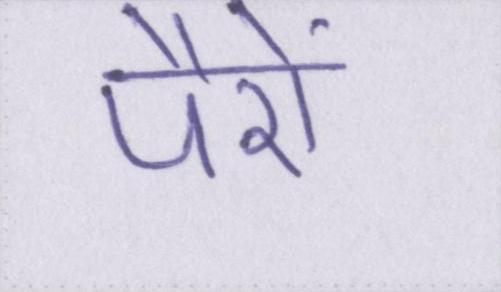 पैरों